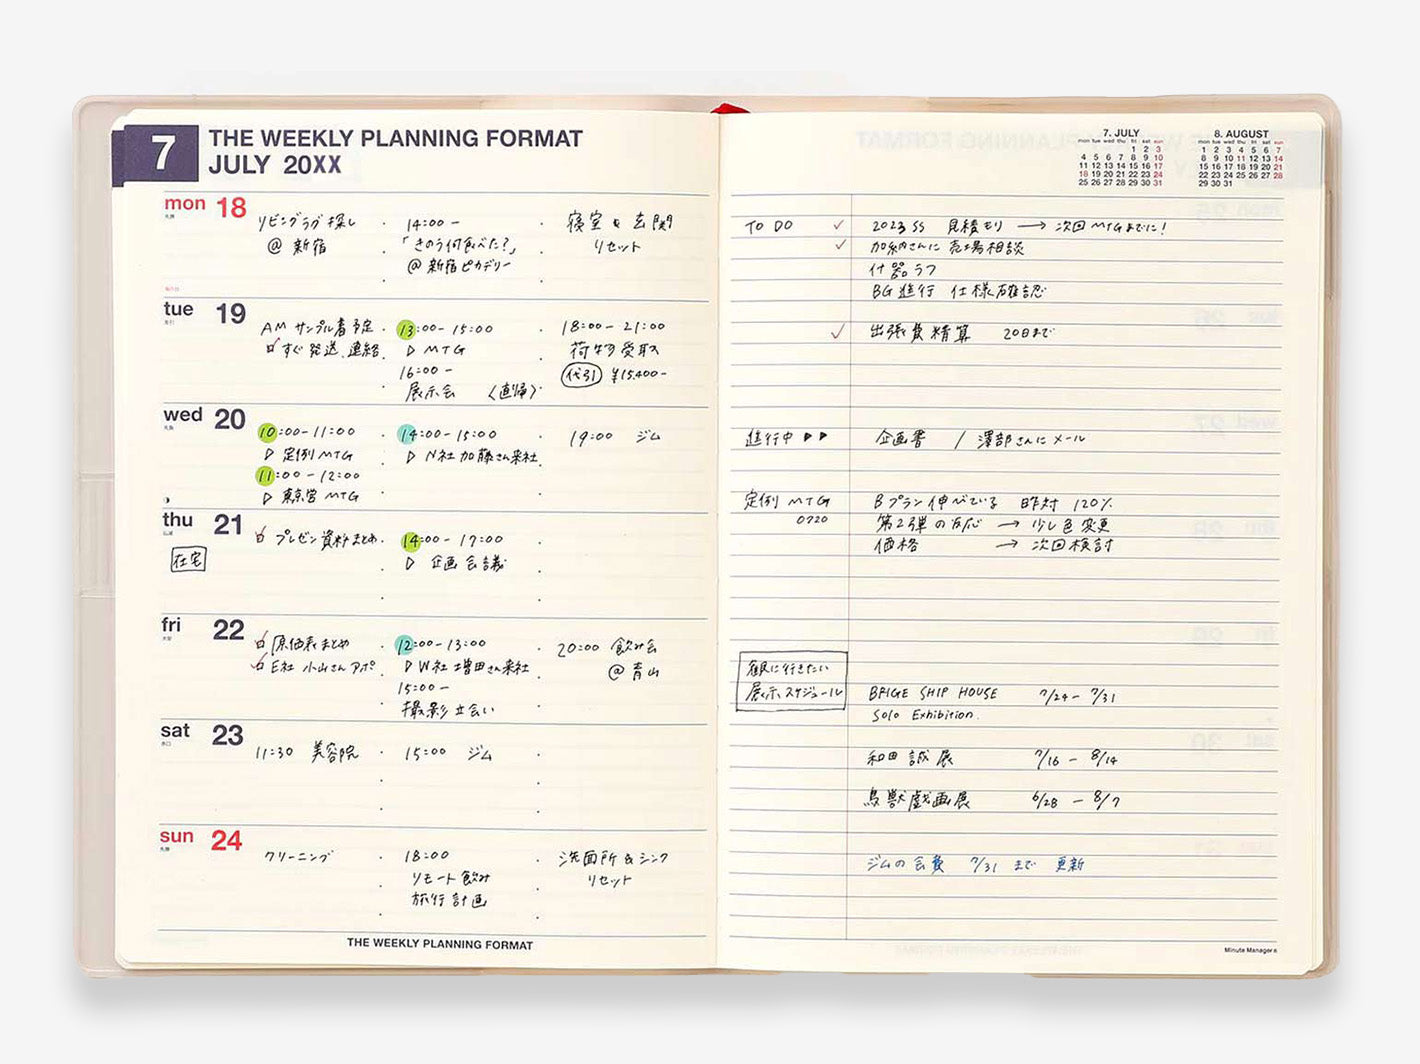 7
THE WEEKLY PLANNING FORMAT
JULY 20XX
mon 18
リビングラグ探し
@ 新宿
14:00 -
「きのう何食べた?」
@ 新宿ピカデリー
寝室 & 玄関
リセット
tue 19
AM サンプル着予定
すぐ発送、連絡
13:00 - 15:00
▷ MTG
16:00 -
展示会 〈直帰〉
18:00 - 21:00
荷物受取
代引 ¥15,400-
wed 20
10:00 - 11:00
▷ 定例MTG
11:00 - 12:00
▷ 東京営 MTG
14:00 - 15:00
▷ N社 加藤さん来社
19:00 ジム
thu 21
在宅
プレゼン資料まとめ
14:00 - 17:00
▷ 企画会議
fri 22
原価表まとめ
E社 小山さんアポ
12:00 - 13:00
▷ W社 増田さん来社
15:00 -
撮影立会い
20:00 飲み会
@ 青山
sat 23
11:30 美容院
15:00 ジム
sun 24
クリーニング
18:00
リモート飲み
旅行計画
洗面所 & シンク
リセット
THE WEEKLY PLANNING FORMAT
7. JULY
mon tue wed thu fri sat sun
1 2 3
4 5 6 7 8 9 10
11 12 13 14 15 16 17
18 19 20 21 22 23 24
25 26 27 28 29 30 31
8. AUGUST
mon tue wed thu fri sat sun
1 2 3 4 5 6 7
8 9 10 11 12 13 14
15 16 17 18 19 20 21
22 23 24 25 26 27 28
29 30 31
TO DO ✓ 2023 SS 見積もり → 次回MTGまでに!
✓ 加納さんに売場相談
什器ラフ
BG進行 仕様確認
✓ 出張費精算 20日まで
進行中 ▶▶ 企画書 / 澤部さんにメール
定例MTG Bプラン伸べている 昨対 120%
0720 第2弾の反応 → 少し色変更
価格 → 次回検討
観に行きたい
展示スケジュール BRIGE SHIP HOUSE 7/24 - 7/31
Solo Exhibition.
和田誠展 7/16 - 8/14
鳥獣戯画展 6/28 - 8/7
ジムの会費 7/31 まで 更新
Minute Manager